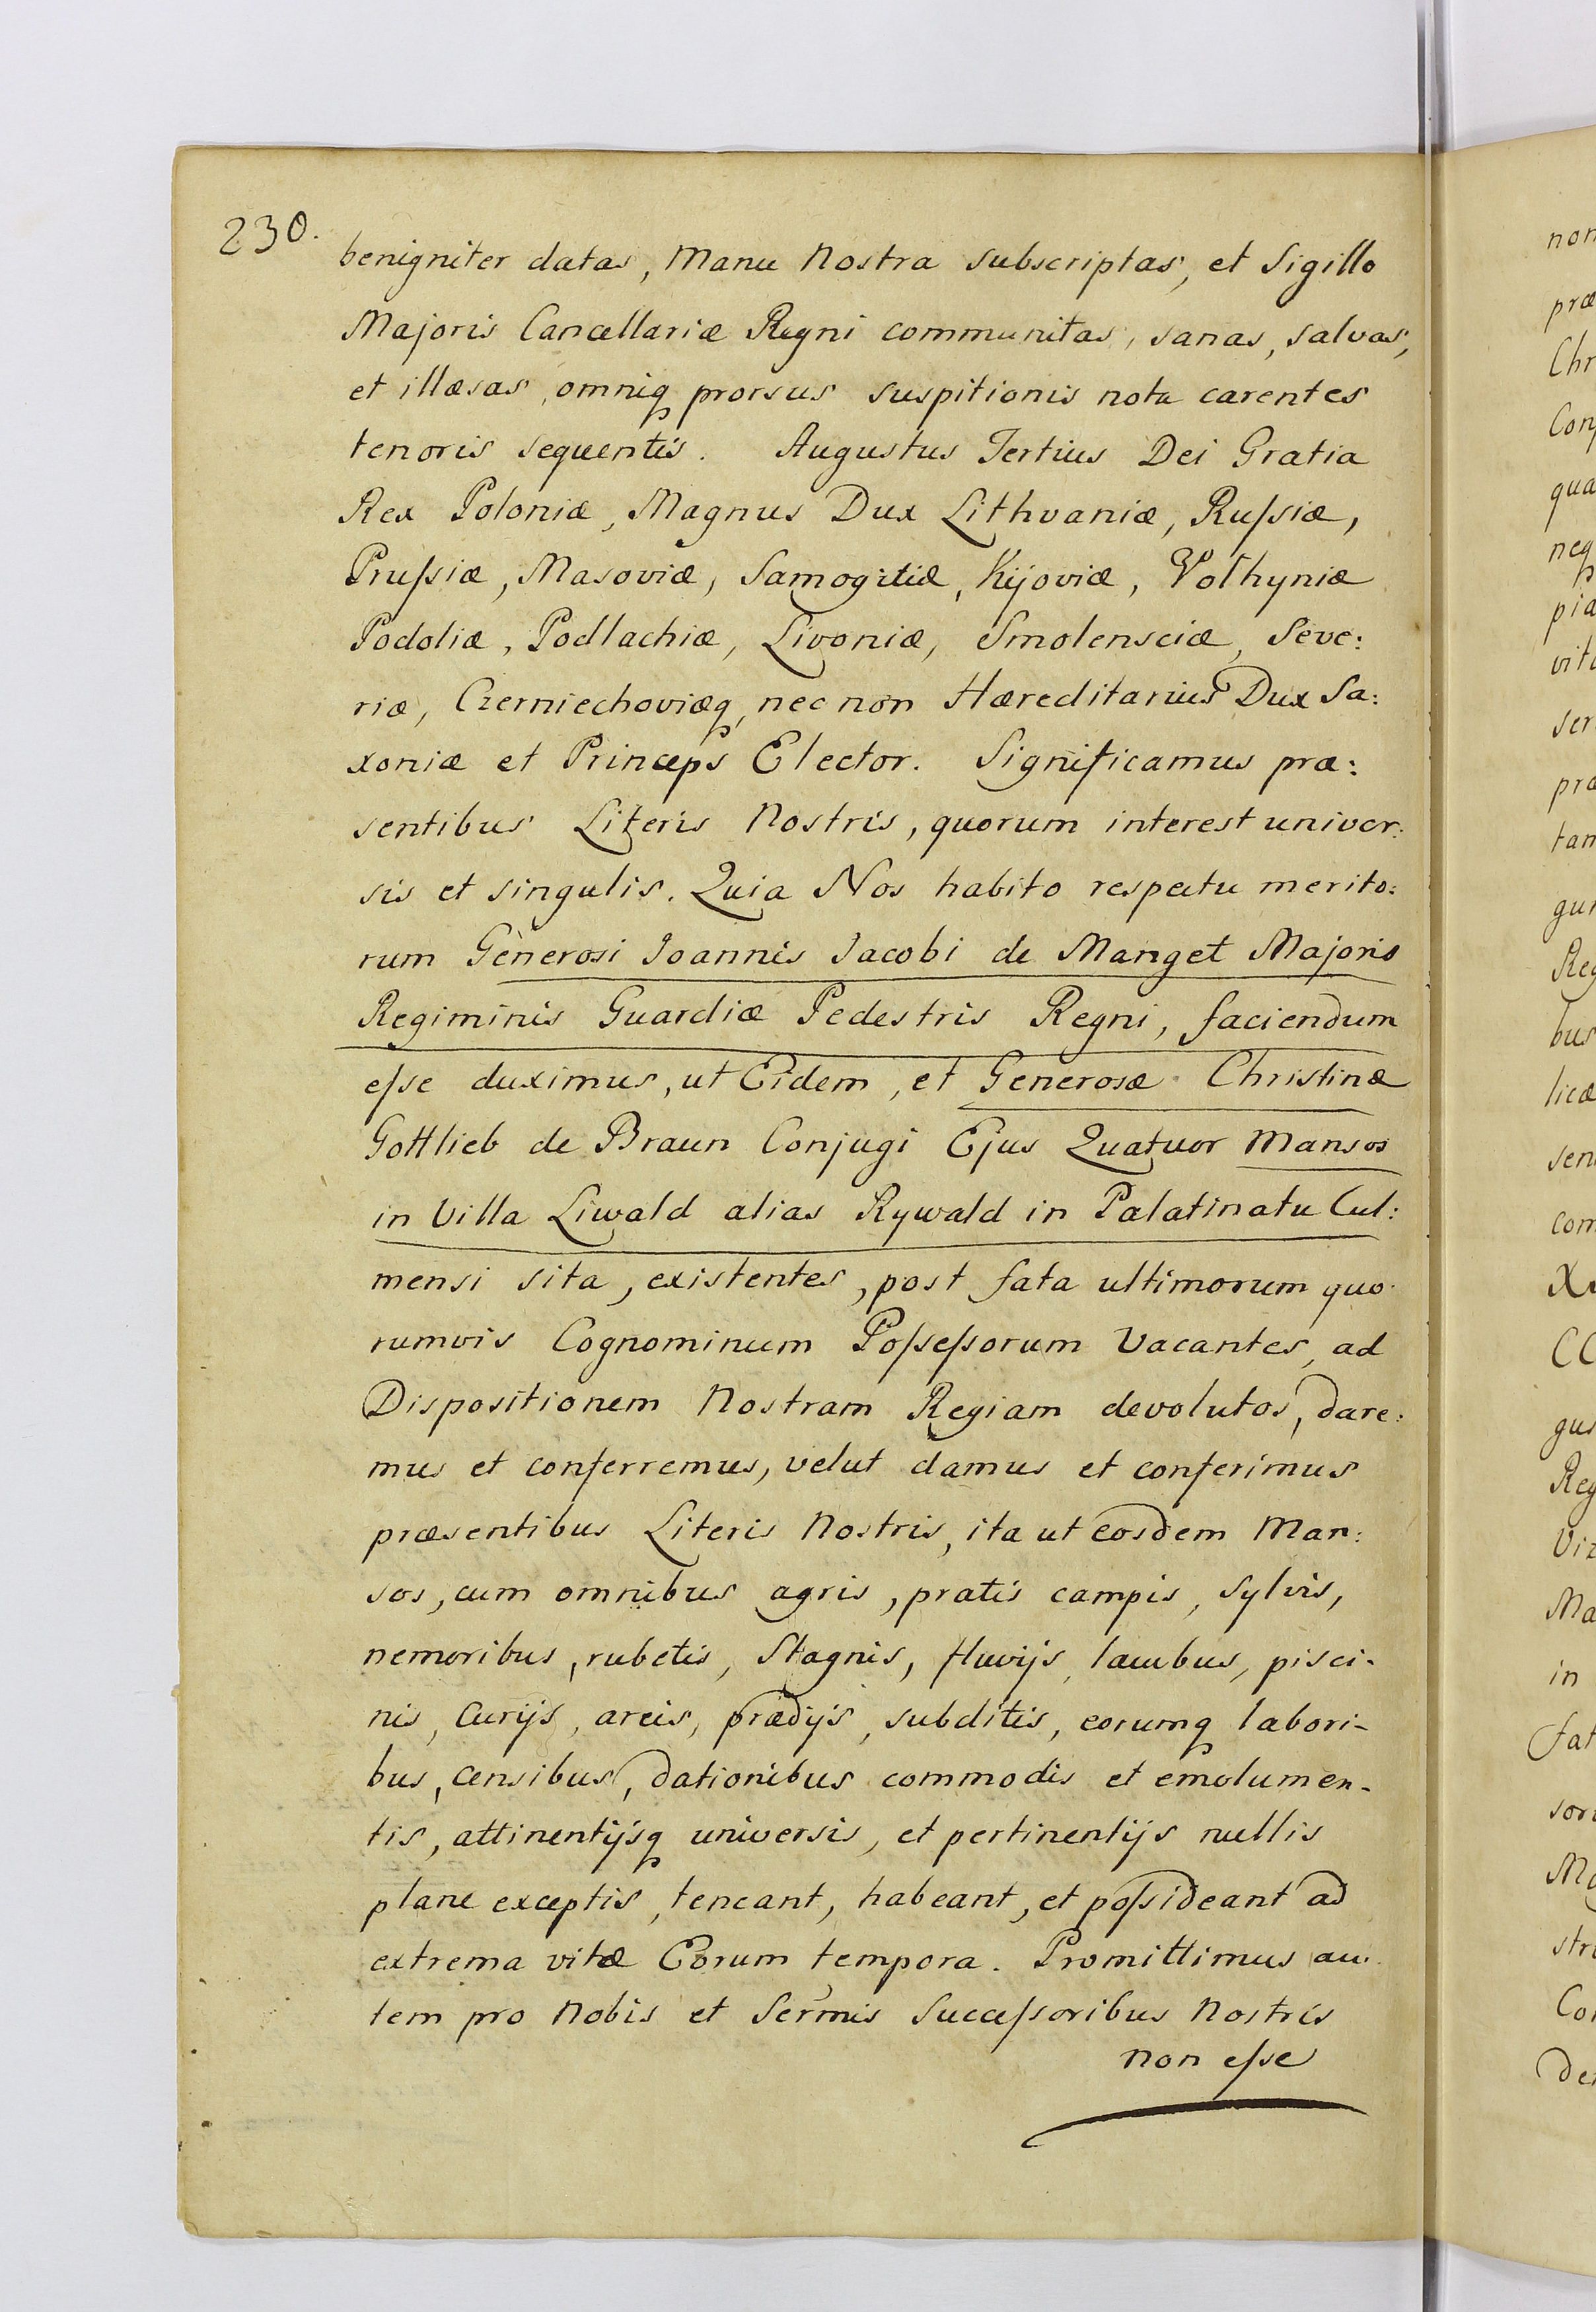 230.
benigniter datas, Manu Nostra subscriptas, et Sigillo
Majoris Cancellariæ Regni communitas, sanas, salvas,
et illæsas, omniq prorsus suspitionis nota carentes
tenoris sequentis. Augustus Tertius Dei Gratia
Rex Poloniæ, Magnus Dux Lithvaniæ, Rußiæ,
Prußiæ, Masoviæ, Samogitiæ, Kijoviæ, Volhyniæ
Podoliæ, Podlachiæ, Livoniæ, Smolensciæ, Seve:
riæ, Czerniechoviæq, nec non Hæreditarius Dux Sa:
xoniæ et Princeps Elector. Significamus præ:
sentibus Literis Nostris, quorum interest univer:
sis et singulis. Quia Nos habito respectu merito:
rum Generosi Joannis Jacobi de Manget Majoris
Regiminis Guardiæ Pedestris Regni, faciendum
eſse duximus, ut Eidem, et Generosæ Christinæ
Gottlieb de Braun Conjugi Ejus Quatuor Mansos
in Villa Liwald alias Rywald in Palatinatu Cul:
mensi sita, existentes, post fata ultimorum quo
rumvis Cognominum Poſseſsorum Vacantes, ad
Dispositionem Nostram Regiam devolutos, dare:
mus et conferremus, velut damus et conferimus
præsentibus Literis Nostris, ita ut eosdem Man:
sos, cum omnibus agris, pratis campis, Sylvis,
nemoribus, rubetis, Stagnis, fluvijs, lacubus, pisci-
nis, Curijs, areis, prædijs, subditis, eorumq labori-
bus, censibus, dationibus commodis et emolumen-
tis, attinentijsq universis, et pertinentijs nullis
plane exceptis, teneant, habeant, et poſsideant ad
extrema vitæ Eorum tempora. Promittimus au
tem pro Nobis et Sermis Succeſsoribus Nostris
non eſse